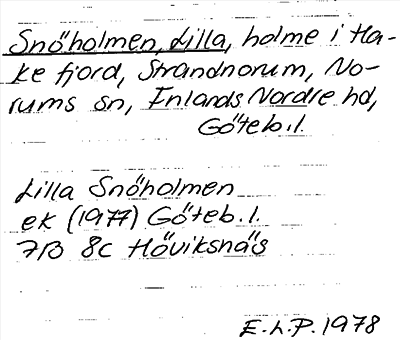 Snöholmen, Lilla, holme i Ha-
ke fjord, Strandnorum, No-
rums sn, Inlands Nordre hd,
Göteb.l.
Lilla Snöholmen
ek (1977) Göteb. l.
7B 8c Höviksnäs
E.L.P. 1978